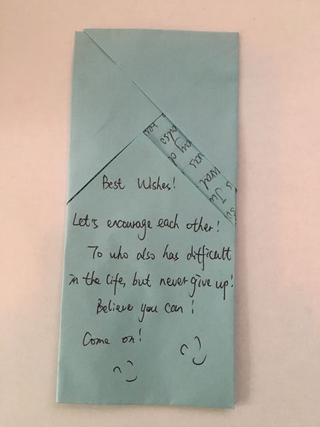 Best Wishes!
Let's encourage each other!
To who also has difficult
in the life, but never give up!
Believe you can!
Come on!